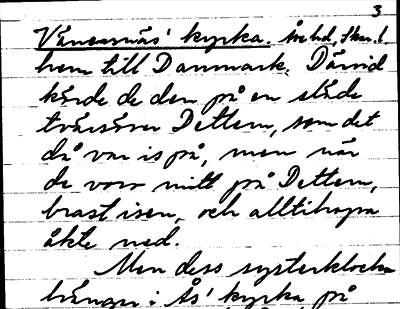 3
Vänersnäs' kyrka. Åse hd, Skar. l.
hem till Danmark. Därvid
körde de den på en släde
tvärsöver Dettern, som det
då var is på, men när
de voro mitt på Dettern,
brast isen, och alltihopa
åkte ned.
Men dess systerklocka
hänger i Ås' kyrka på